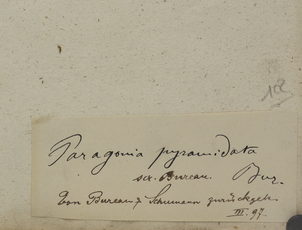 108
Paragonia pyramidata
scr. Bureau. Bur.
Von Bureau & Schumann zurückgeh.
III. 97.